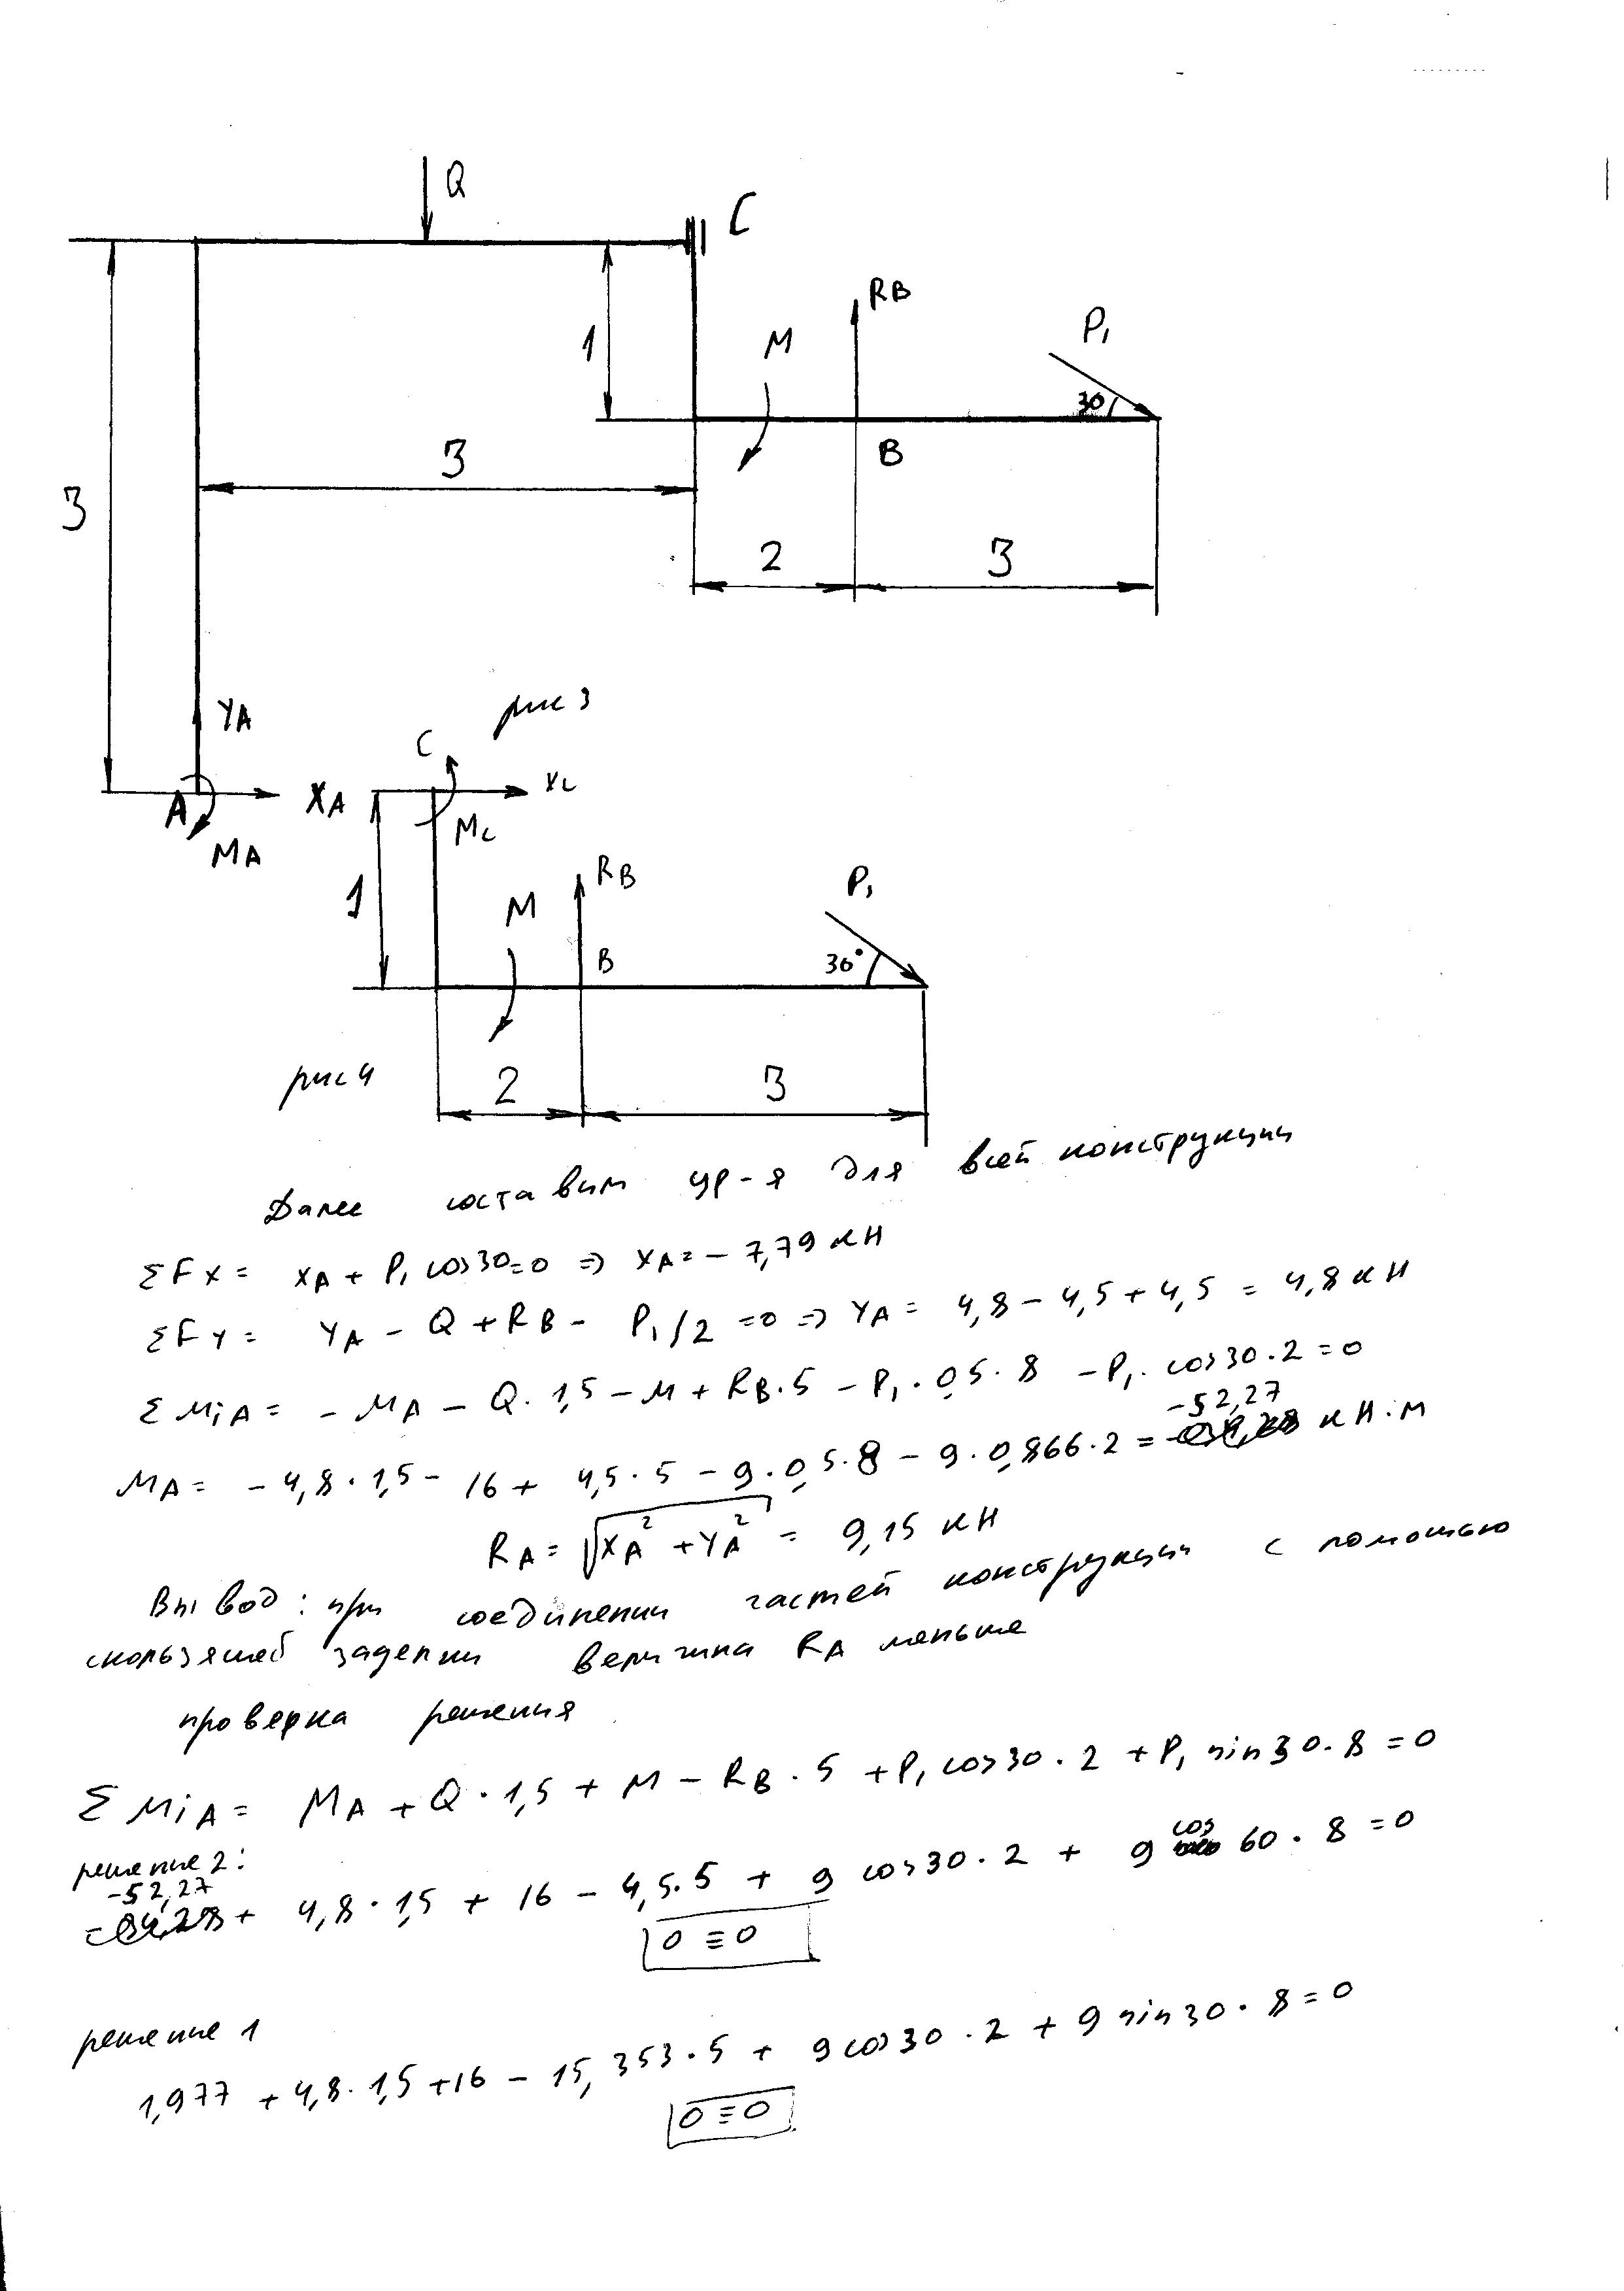 Q
C
RB
P₁
1
M
30
B
3
3
2
3
YA
рис 3
C
A
XA
XC
MC
MA
1
RB
P₁
M
B
30°
рис 4
2
3
Далее составим ур-я для всей конструкции
ΣFx = XA + P₁ cos30=0 => XA = - 7,79 кН
ΣFY = YA - Q + RB - P₁/2 =0 => YA = 4,8 - 4,5 + 4,5 = 4,8 кН
ΣMiA = - MA - Q · 1,5 - M + RB · 5 - P₁ · 0,5 · 8 - P₁ · cos30 · 2 = 0
MA = - 4,8 · 1,5 - 16 + 4,5 · 5 - 9 · 0,5 · 8 - 9 · 0,866 · 2 = -52,27 кН·м
RA = √XA² + YA² = 9,15 кН
Вывод: при соединении частей конструкции с помощью
скользящей заделки величина RA меньше
проверка решения
ΣMiA = MA + Q · 1,5 + M - RB · 5 + P₁ cos30 · 2 + P₁ sin30 · 8 = 0
решение 2:
-52,27 + 4,8 · 1,5 + 16 - 4,5 · 5 + 9 cos30 · 2 + 9 cos 60 · 8 = 0
0 ≡ 0
решение 1
1,977 + 4,8 · 1,5 + 16 - 15,353 · 5 + 9 cos30 · 2 + 9 sin30 · 8 = 0
0 ≡ 0